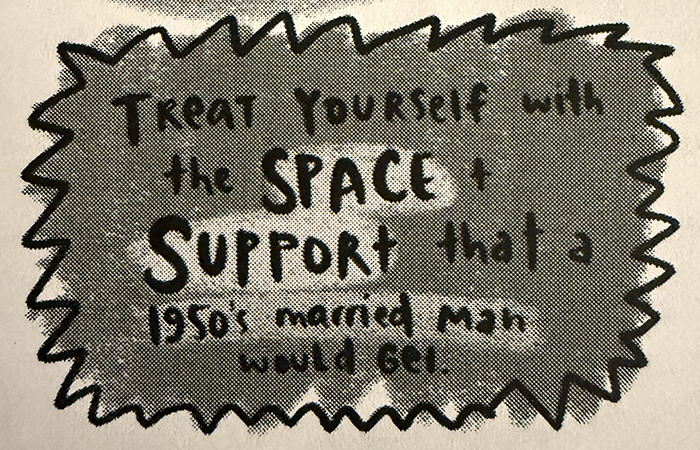 TReaT YOURSelf with
the SPACE +
SUPPORt that a
1950's married Man
would GeT.